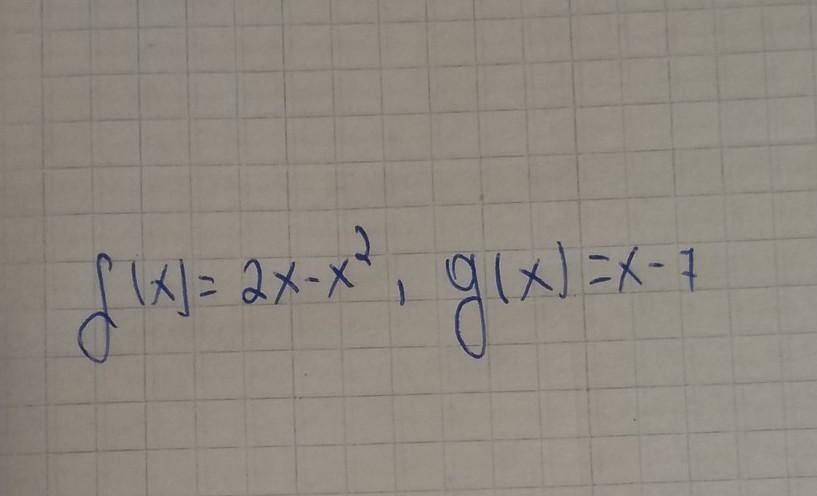 f(x) = 2x - x², g(x) = x - 7